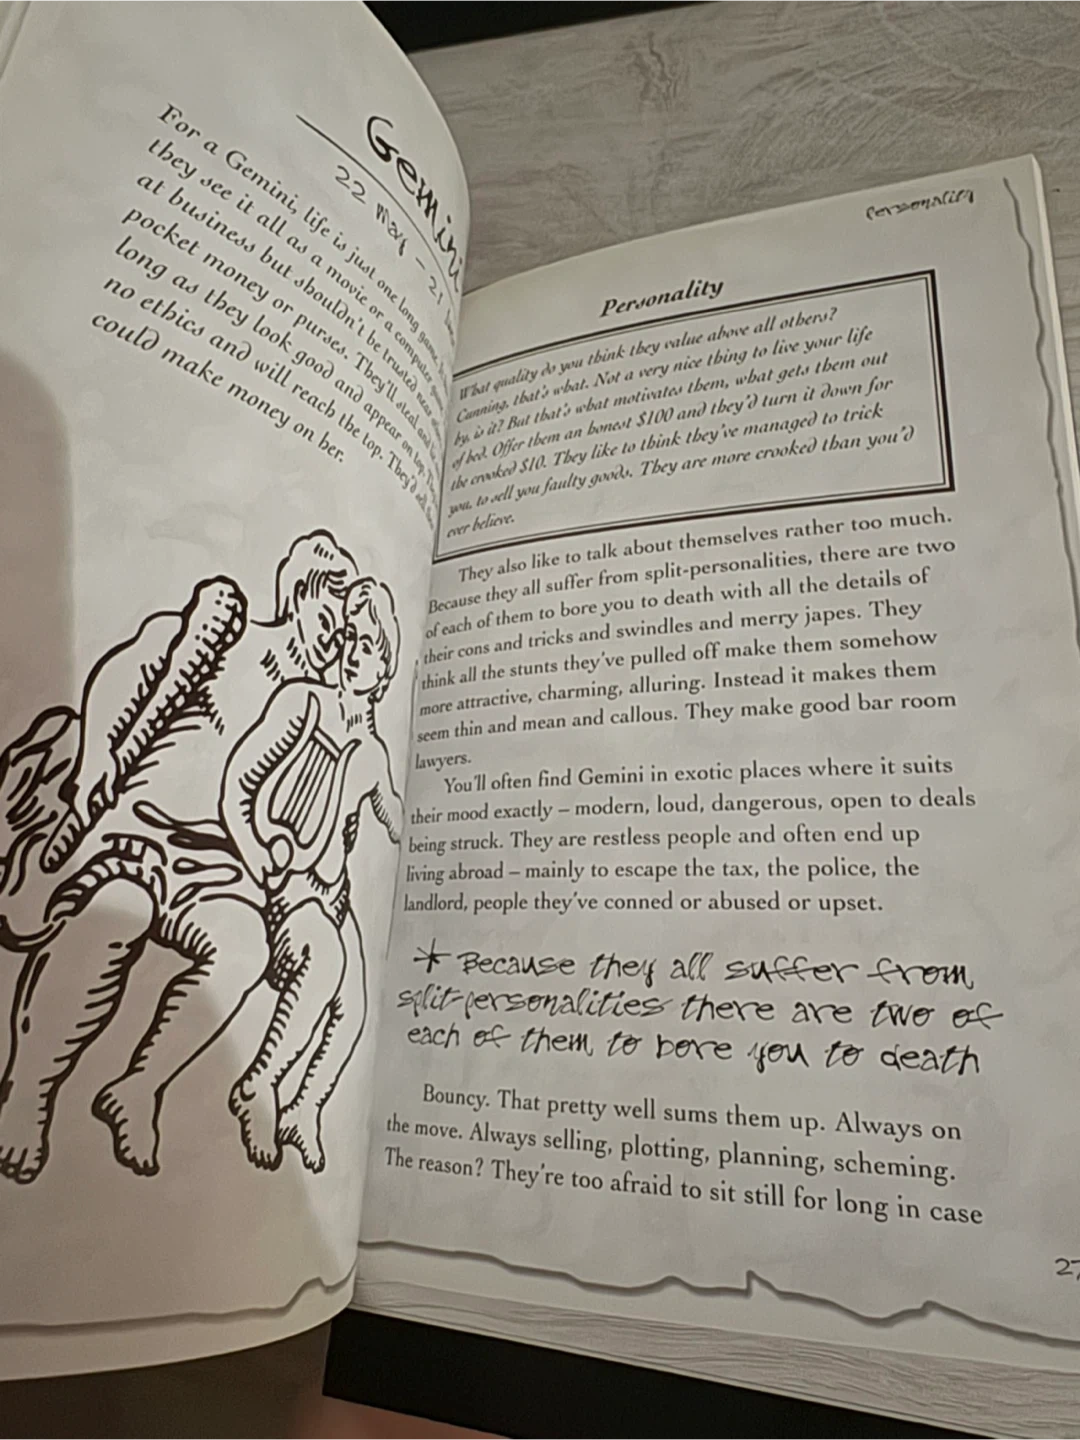 Gemini
22 May – 21
For a Gemini, life is just one long game.
they see it all as a movie or a computer game
at business but shouldn't be trusted near
pocket money or purses. They'll steal and
long as they look good and appear on top. They
no ethics and will reach the top. They'd sell
could make money on her.
Personality
Personality
What quality do you think they value above all others?
Cunning, that's what. Not a very nice thing to live your life
by, is it? But that's what motivates them, what gets them out
of bed. Offer them an honest $100 and they'd turn it down for
the crooked $10. They like to think they've managed to trick
you, to sell you faulty goods. They are more crooked than you'd
ever believe.
They also like to talk about themselves rather too much.
Because they all suffer from split-personalities, there are two
of each of them to bore you to death with all the details of
their cons and tricks and swindles and merry japes. They
think all the stunts they've pulled off make them somehow
more attractive, charming, alluring. Instead it makes them
seem thin and mean and callous. They make good bar room
lawyers.
You'll often find Gemini in exotic places where it suits
their mood exactly – modern, loud, dangerous, open to deals
being struck. They are restless people and often end up
living abroad – mainly to escape the tax, the police, the
landlord, people they've conned or abused or upset.
* Because they all suffer from
split-personalities there are two of
each of them to bore you to death
Bouncy. That pretty well sums them up. Always on
the move. Always selling, plotting, planning, scheming.
The reason? They're too afraid to sit still for long in case
27